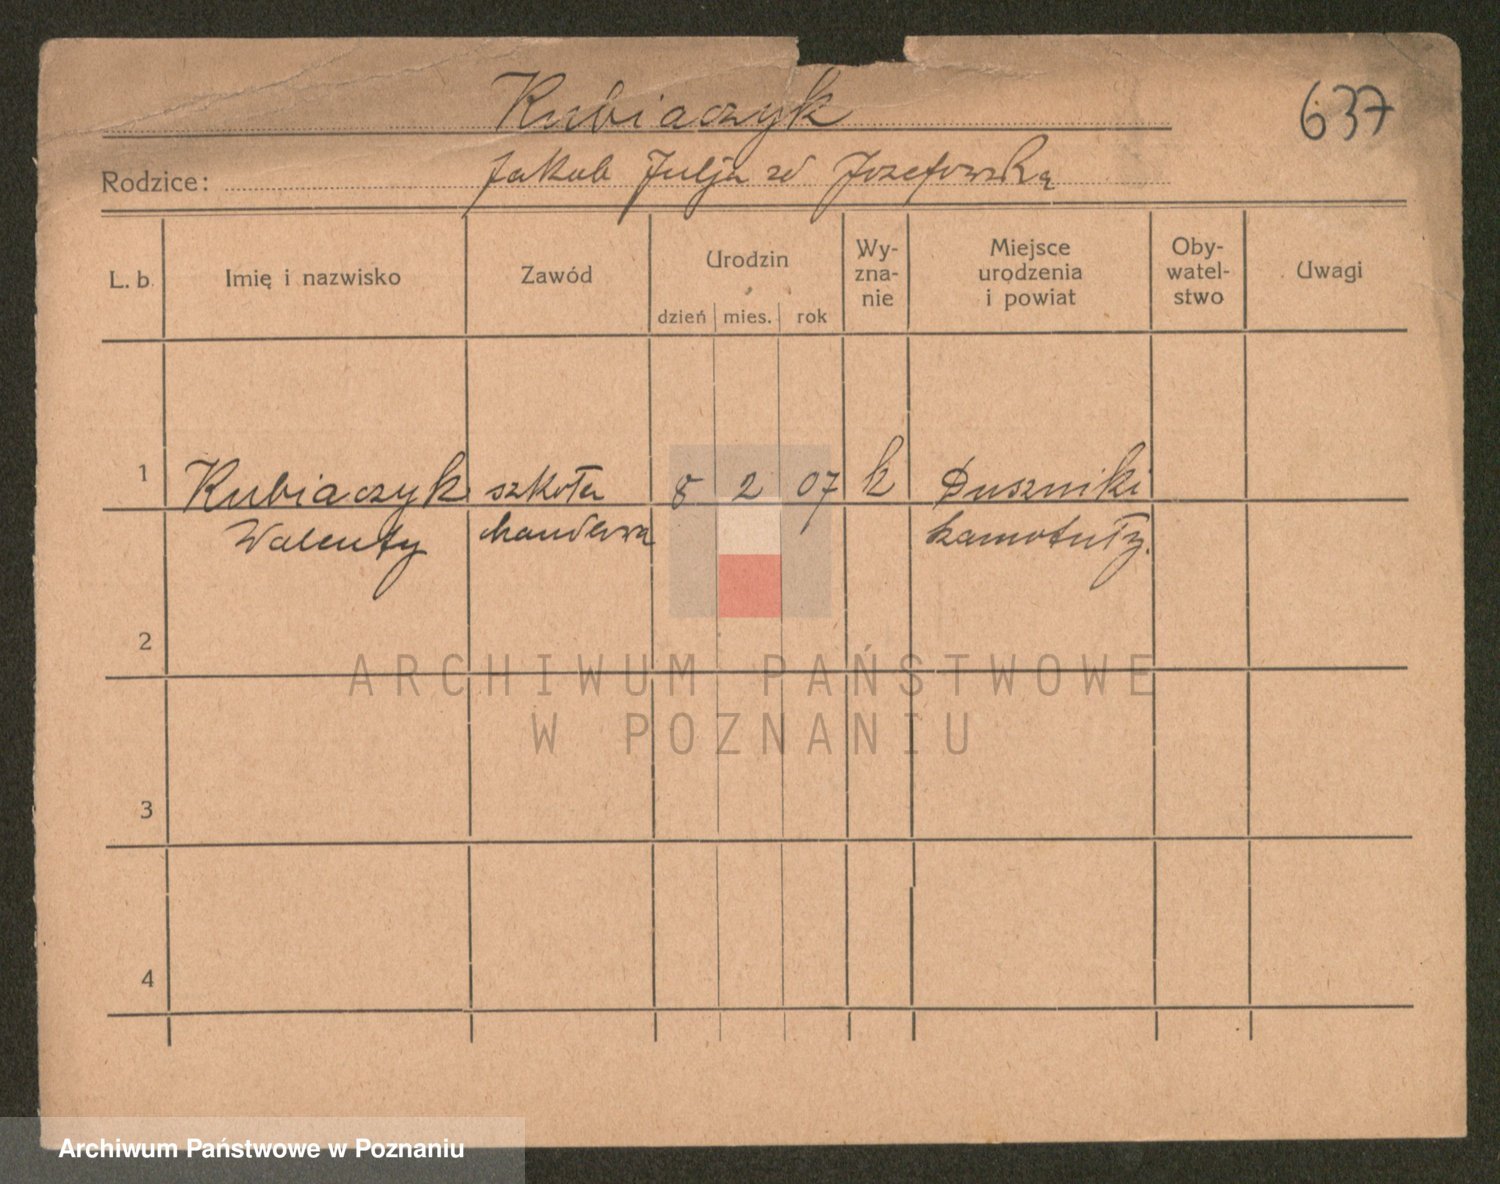 Kubiaczyk
637
Rodzice: Jakob Julja zd Jozefowską
L. b. Imię i nazwisko Zawód Urodzin dzień mies. rok Wy-zna-nie Miejsce urodzenia i powiat Oby-watel-stwo Uwagi
1 Kubiaczyk szkoła 8 2 07 k Duszniki
Walenty handlowa
2
3
4
ARCHIWUM PAŃSTWOWE
W POZNANIU
Archiwum Państwowe w Poznaniu